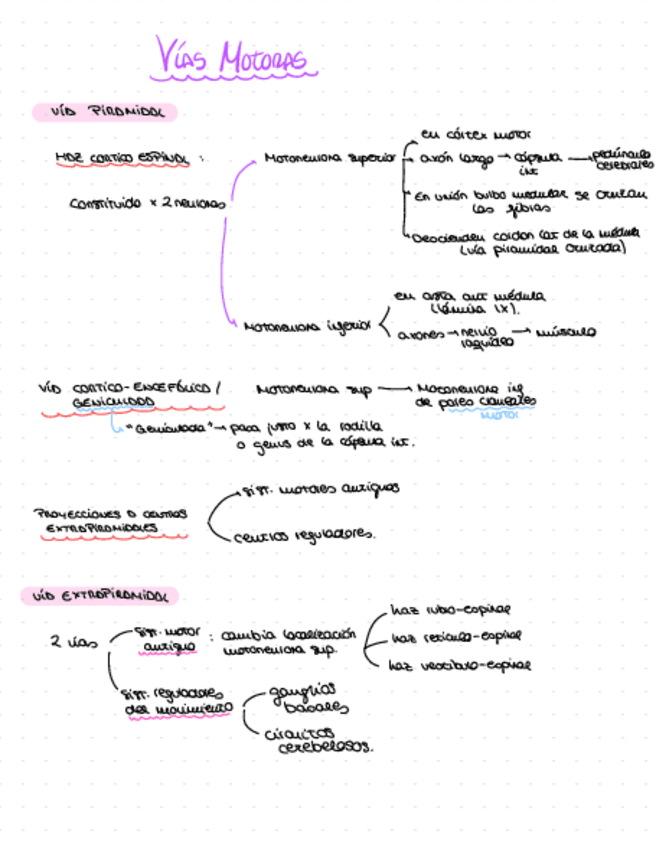 VÍAS MOTORAS
VÍA PIRAMIDAL
HAZ CORTICO ESPINAL :
Constituido x 2 neuronas
Motoneurona superior
en córtex motor
axón largo → cápsula int → pedúnculo cerebrales
En unión bulbo medular se cruzan
las fibras
Descienden cordon lat de la médula
(vía piramidal cruzada)
Motoneurona inferior
en asta ant médula
(lámina IX).
axones → nervio raquídeo → músculo
VÍA CORTICO-ENCEFÁLICA /
GENICULADA
Motoneurona sup → Motoneurona inf
de pares craneales
MOTOR
"Geniculada" → pasa justo x la rodilla
o genus de la cápsula int.
PROYECCIONES A CENTROS
EXTRAPIRAMIDALES
sist. motores antiguos
centros reguladores.
VÍA EXTRAPIRAMIDAL
2 vías
sist. motor
antiguo
: cambia localización
motoneurona sup.
haz rubo-espinal
haz reticulo-espinal
haz vestibulo-espinal
sist. reguladores
del movimiento
ganglios
basales
circuitos
cerebelosos.